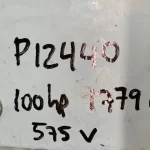 P12440
100hp 1779
575 V